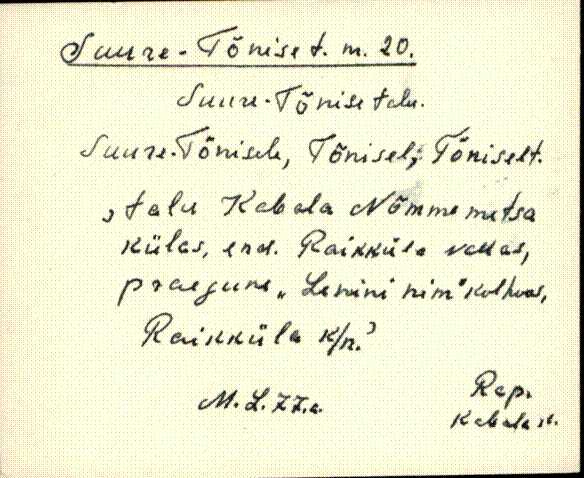 Suure-Tõnise t. m. 20.
Suure-Tõnise talu.
Suure-Tõnisele, Tõnisel, Tõniselt.
, talu Kabala Nõmmemetsa
külas, end. Raikküla vallas,
praegune „Lenini nim" kolhoos,
Raikküla k/n.'
M. L. 77.a.
Rap.
Kabala